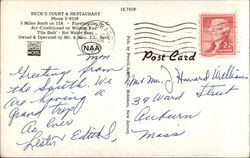 16,765F
BECK'S COURT & RESTAURANT
Phone 2-6518
5 Miles South on 15A - Fayetteville,
Air-Conditioned or
Tile Bath - Hot Water Heat
Owned & Operated by Mr. & Mrs. J.L. Beck
NAA
Post Card
2¢
Mon.
Greetings from
the South. We
are having a
Grand trip.
As ever
Lester Edith S.
Mr & Mrs. J Howard Williams
39 Ward Street
Auburn
Mass